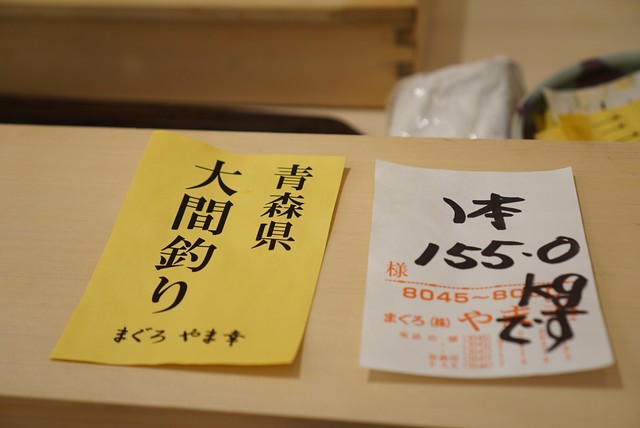 青森県
大間釣り
まぐろ やま幸
1本
155.0
kg
です
様
8045~80
まぐろ(株)やま